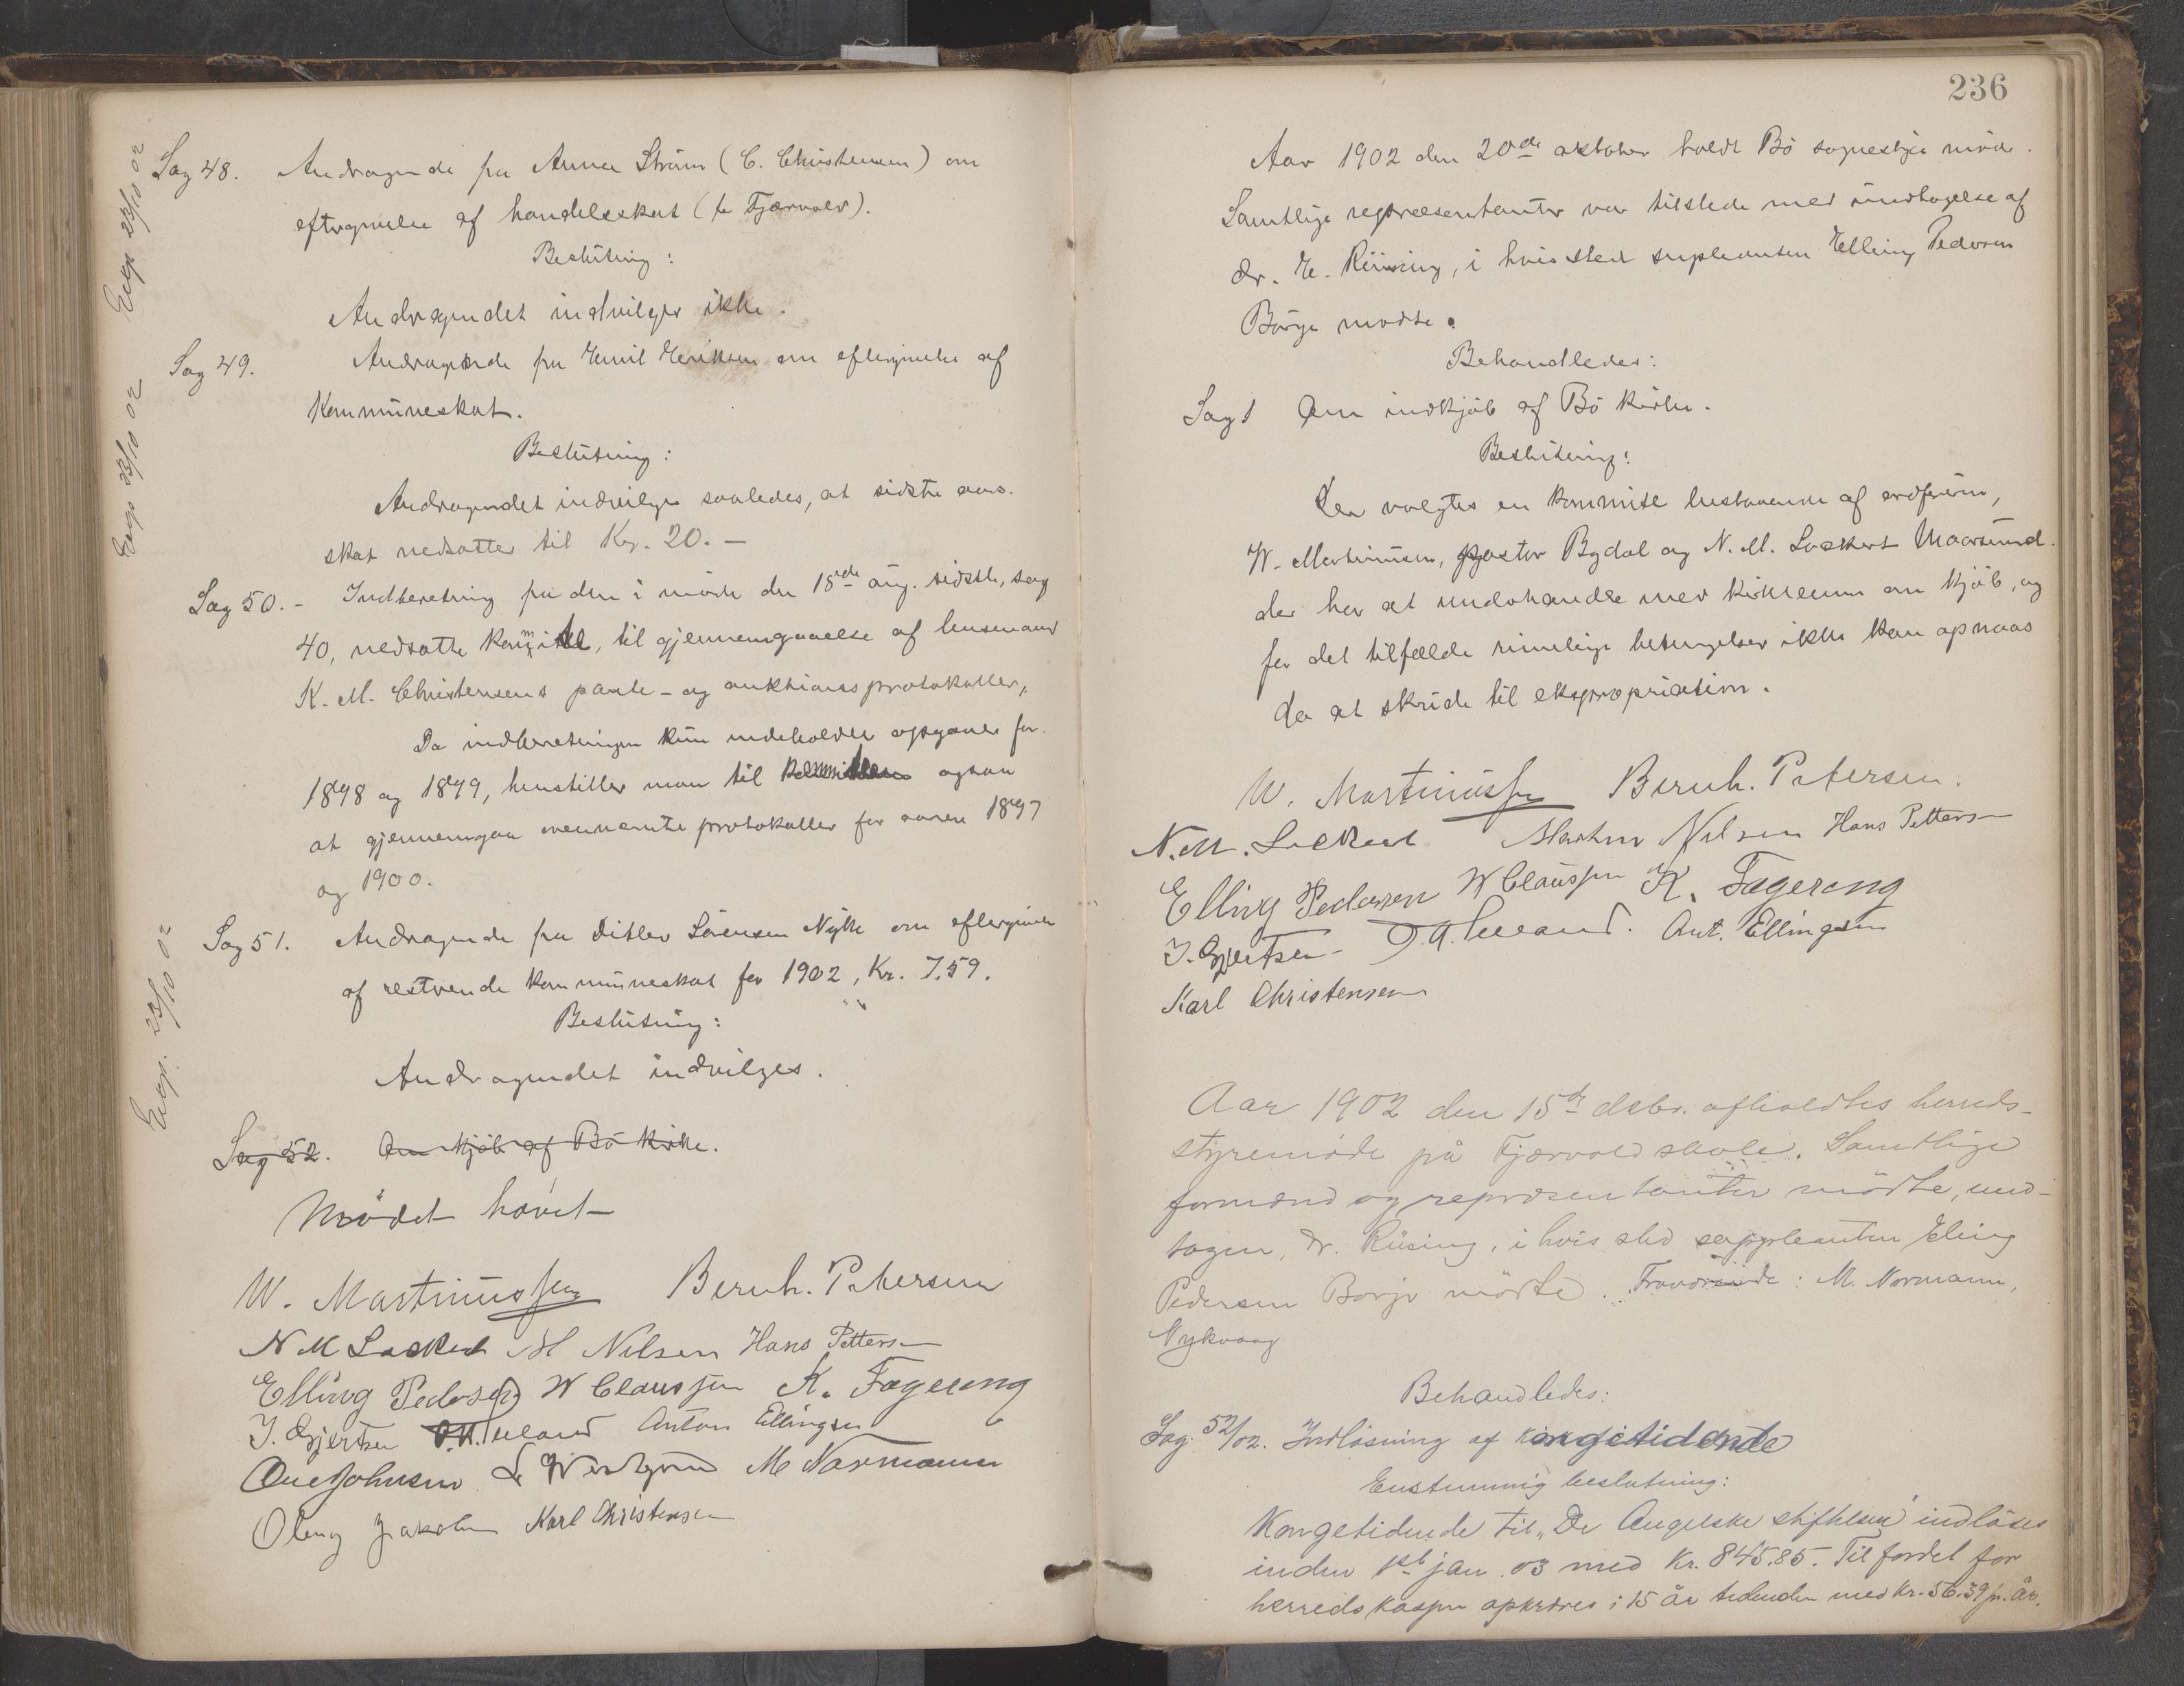 Sag 48. Andragende fra Anna Ström (C. Christensen) om
eftergivelse af handelsskat (fa Fjærvolv).
Beslutning:
Andragendet indvilges ikke.
Exp 23/10 02
Sag 49. Andragende fra Emil Eriksen om eftergivelse af
Kommuneskat.
Beslutning:
Andragendet indvilges saaledes, at sidste aars
skat nedsættes til Kr. 20. —
Exp 23/10 02
Sag 50. - Indberetning fra den i möde den 18de aug. sidstl, sag
40, nedsatte Kommitte, til gjennemgaaelse af lensmand
K. M. Christensens pante- og auktionsprotokoller,
Da indberetningen kun indeholder opgaver for
1898 og 1899, henstiller man til Kommitteen ogsaa
at gjennemgaa ovennævnte protokoller for aarene 1897
og 1900.
Sag 51. Andragende fra Ditlev Sörensen Nykke om eftergivelse
af restrende kommuneskat for 1902, Kr. 7.59.
Beslutning:
Andragendet indvilges.
Exp. 23/10 02
Sag 52. Om kjöb af Bö kirke.
Mödet hævet
W. Martinussen Bernh. Petersen
N M Lockert M Nilsen Hans Petterse
Elling Pedersen W Claussen K. Fagereng
J. Gjertsen Anton Ellingsen
Ole Johnsen M Normann
Jakobsen Karl Christensen
236
Aar 1902 den 20de oktober holdt Bö sognestyre möde.
Samtlige repræsentanter var tilstede med undtagelse af
dr. E. Riising, i hvis sted supleanten Elling Pedersen
Börge mödte.
Behandledes:
Sag 1 Om indkjöb af Bö kirke.
Beslutning:
Der valgtes en kommite bestaaende af ordföreren,
W. Martinussen, pastor Bydal og N. M. Lockert Maarsund.
der har at underhandle med kirkeeieren om kjöb, og
for det tilfælde rimelige betingelser ikke kan opnaaes
da at skride til ekspropriation.
W. Martinussen Bernh. Petersen.
N. M. Lockert Martin Nilsen Hans Petterse
Elling Pedersen W Claussen K. Fagereng
J. Gjertsen Ant. Ellingsen
Karl Christensen
Aar 1902 den 15de debr. afholdtes herreds-
styremöde på Fjærvold skole. Samtlige
formænd og repræsentanter mödte, und-
tagen, dr. Riising, i hvis sted suppleanten Eling
Pedersen Børge mödte. Fraværende: M. Normann,
Nykvaag
Behandledes:
Sag. 52/02. Indlösning af kongetidende
Enstemmig beslutning:
Kongetidende til „De Angelske stiftelser" indlöses
inden 1st jan. 03 med kr. 845.85. Til fordel for
herredskassen opkræves i 15 år tidenden med kr. 56.39 pr. år.